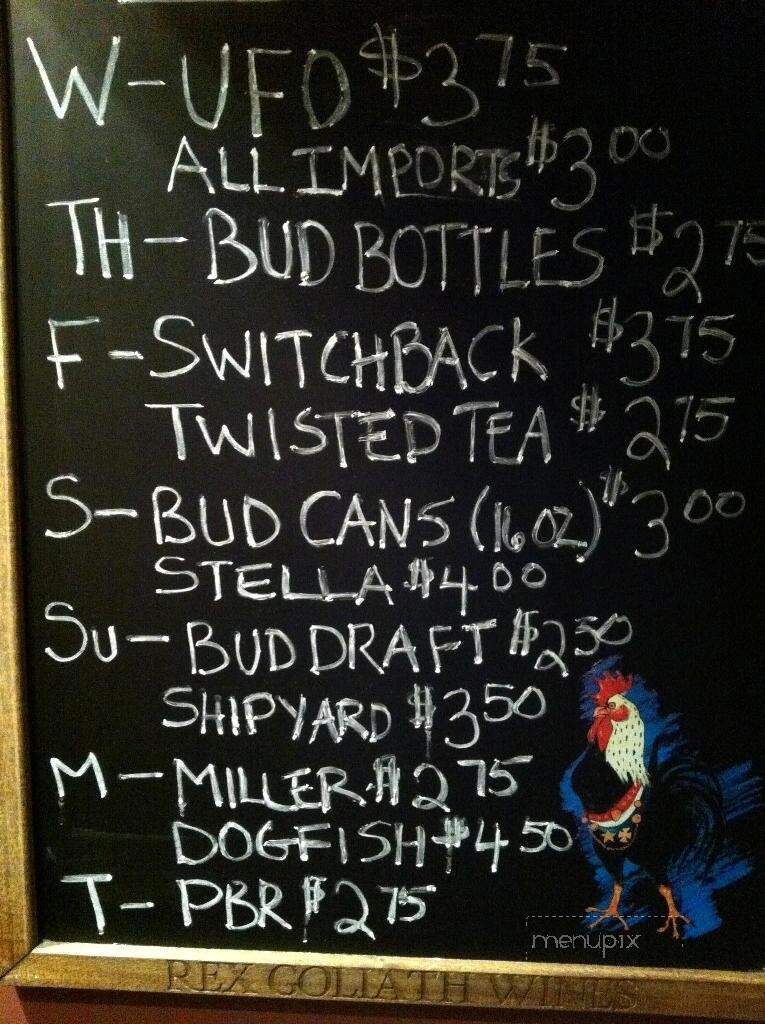 W-UFO $3.75
ALL IMPORTS $3.00
TH-BUD BOTTLES $2.75
F-SWITCHBACK $3.75
TWISTED TEA $2.75
S-BUD CANS (16 OZ) $3.00
STELLA $4.00
SU-BUD DRAFT $2.50
SHIPYARD $3.50
M-MILLER $2.75
DOGFISH $4.50
T-PBR $2.75
menupix
REX GOLIATH WINES